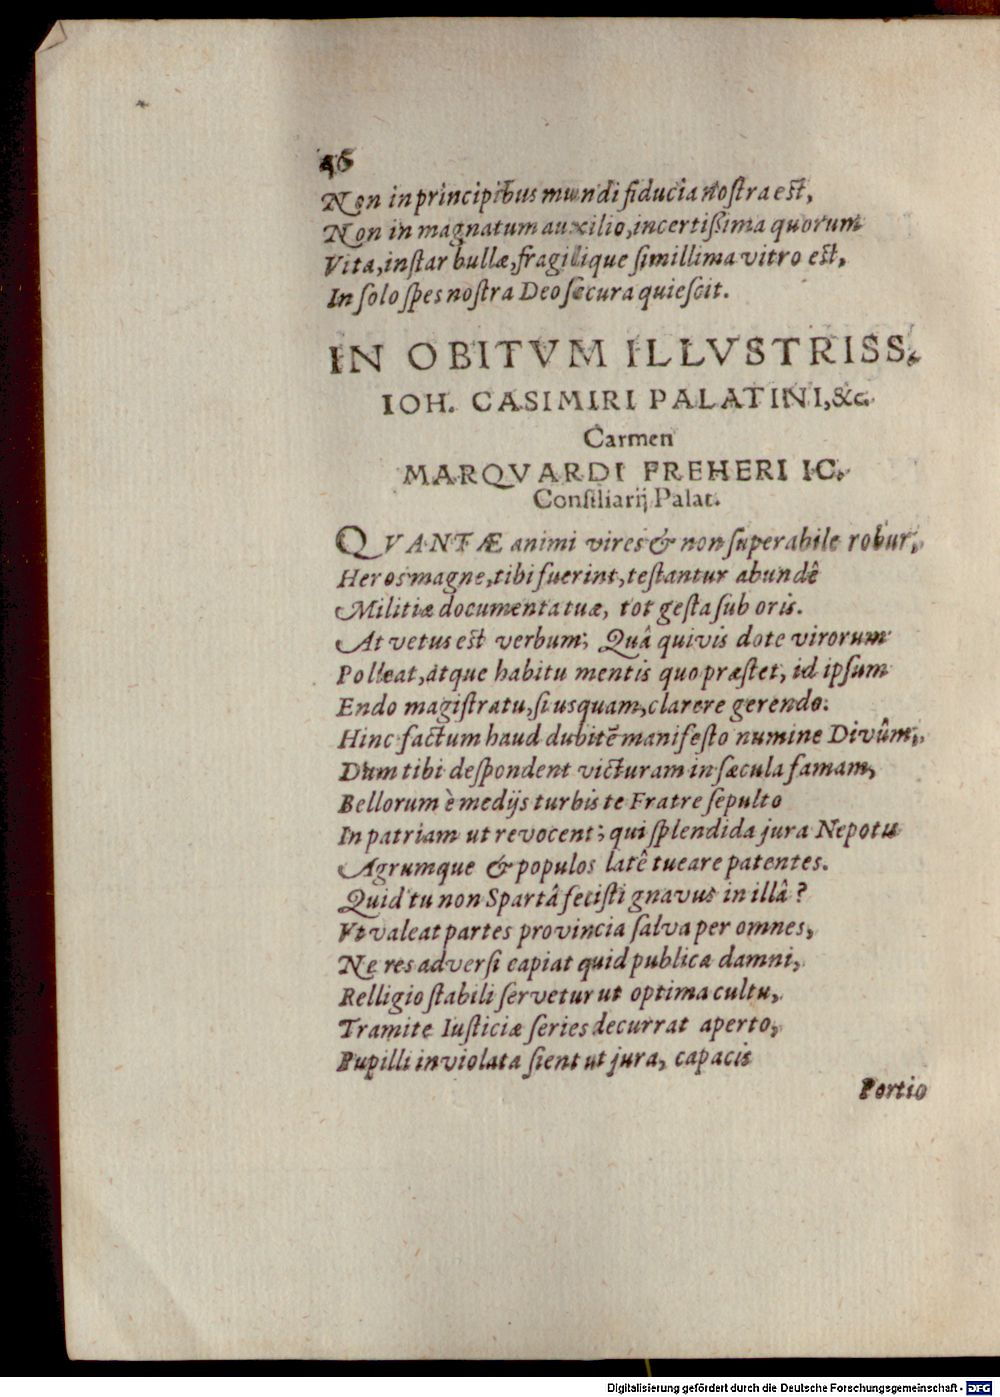 46
Non in principibus mundi fiducia noſtra eſt,
Non in magnatum auxilio, incertiſsima quorum
Vita, inſtar bullæ, fragilique ſimillima vitro eſt,
In ſolo ſpes noſtra Deo ſecura quieſcit.
IN OBITVM ILLVSTRISS.
IOH. CASIMIRI PALATINI, &c.
Carmen
MARQVARDI FREHERI IC.
Conſiliarij Palat.
QVANTÆ animi vires & non ſuperabile robur,
Heros magne, tibi fuerint, teſtantur abundê
Militiæ documenta tuæ, tot geſta ſub oris.
At vetus eſt verbum; Quâ quivis dote virorum
Polleat, atque habitu mentis quo præſtet, id ipſum
Endo magiſtratu, ſi usquam, clarere gerendo.
Hinc factum haud dubitē manifeſto numine Divûm,
Dum tibi deſpondent victuram in ſæcula famam,
Bellorum è medijs turbis te Fratre ſepulto
In patriam ut revocent; qui ſplendida jura Nepotis
Agrumque & populos latê tueare patentes.
Quid tu non Spartâ feciſti gnavus in illâ?
Vt valeat partes provincia ſalva per omnes,
Ne res adverſi capiat quid publica damni,
Relligio ſtabili ſervetur ut optima cultu,
Tramite Iuſticiæ ſeries decurrat aperto,
Pupilli inviolata ſient ut jura, capacis
Portio
Digitalisierung gefördert durch die Deutsche Forschungsgemeinschaft - DFG